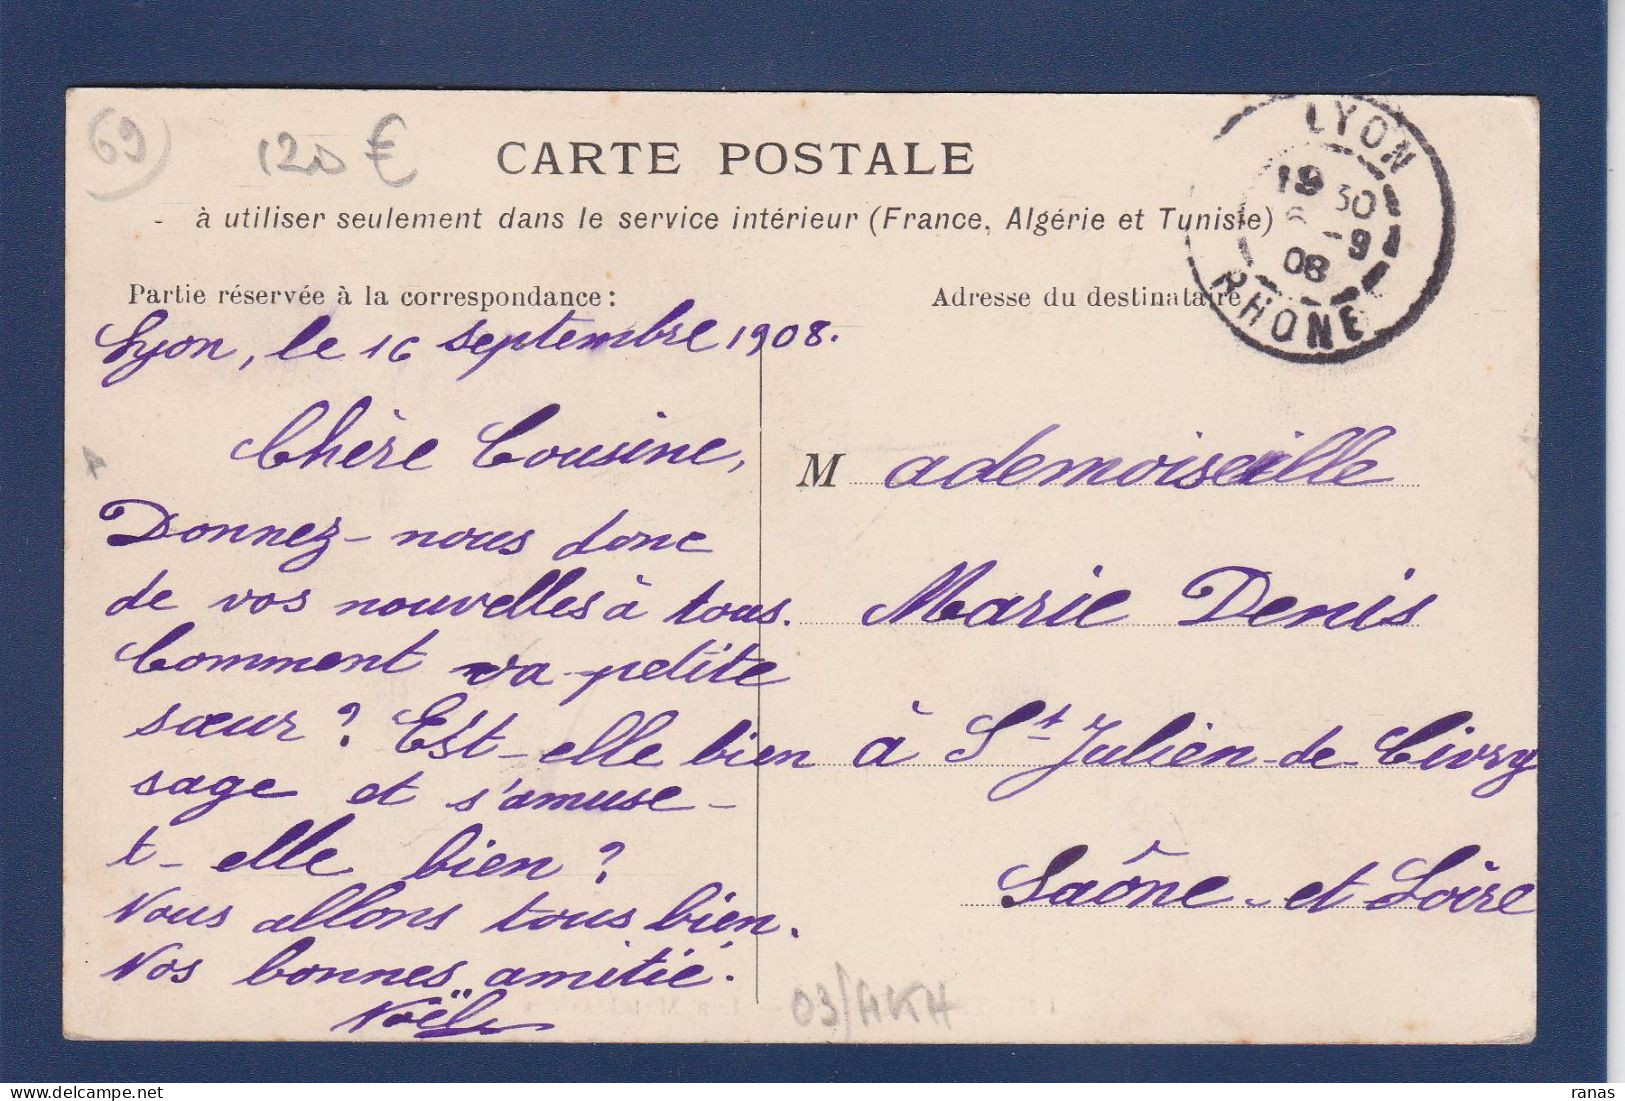 69
120 €
CARTE POSTALE
- à utiliser seulement dans le service intérieur (France, Algérie et Tunisie)
LYON
19 30
-9
08
RHONE
Partie réservée à la correspondance :
Adresse du destinataire
Lyon, le 16 septembre 1908.
Chère Cousine,
Donnez-nous donc
de vos nouvelles à tous.
Comment va petite
sœur ? Est-elle bien
sage et s'amuse-
t-elle bien ?
Nous allons tous bien.
Nos bonnes amitié.
Noël
M ademoiselle
Marie Denis
à St Julien-de-Civry
Saône-et Loire
03/AKH
ranas